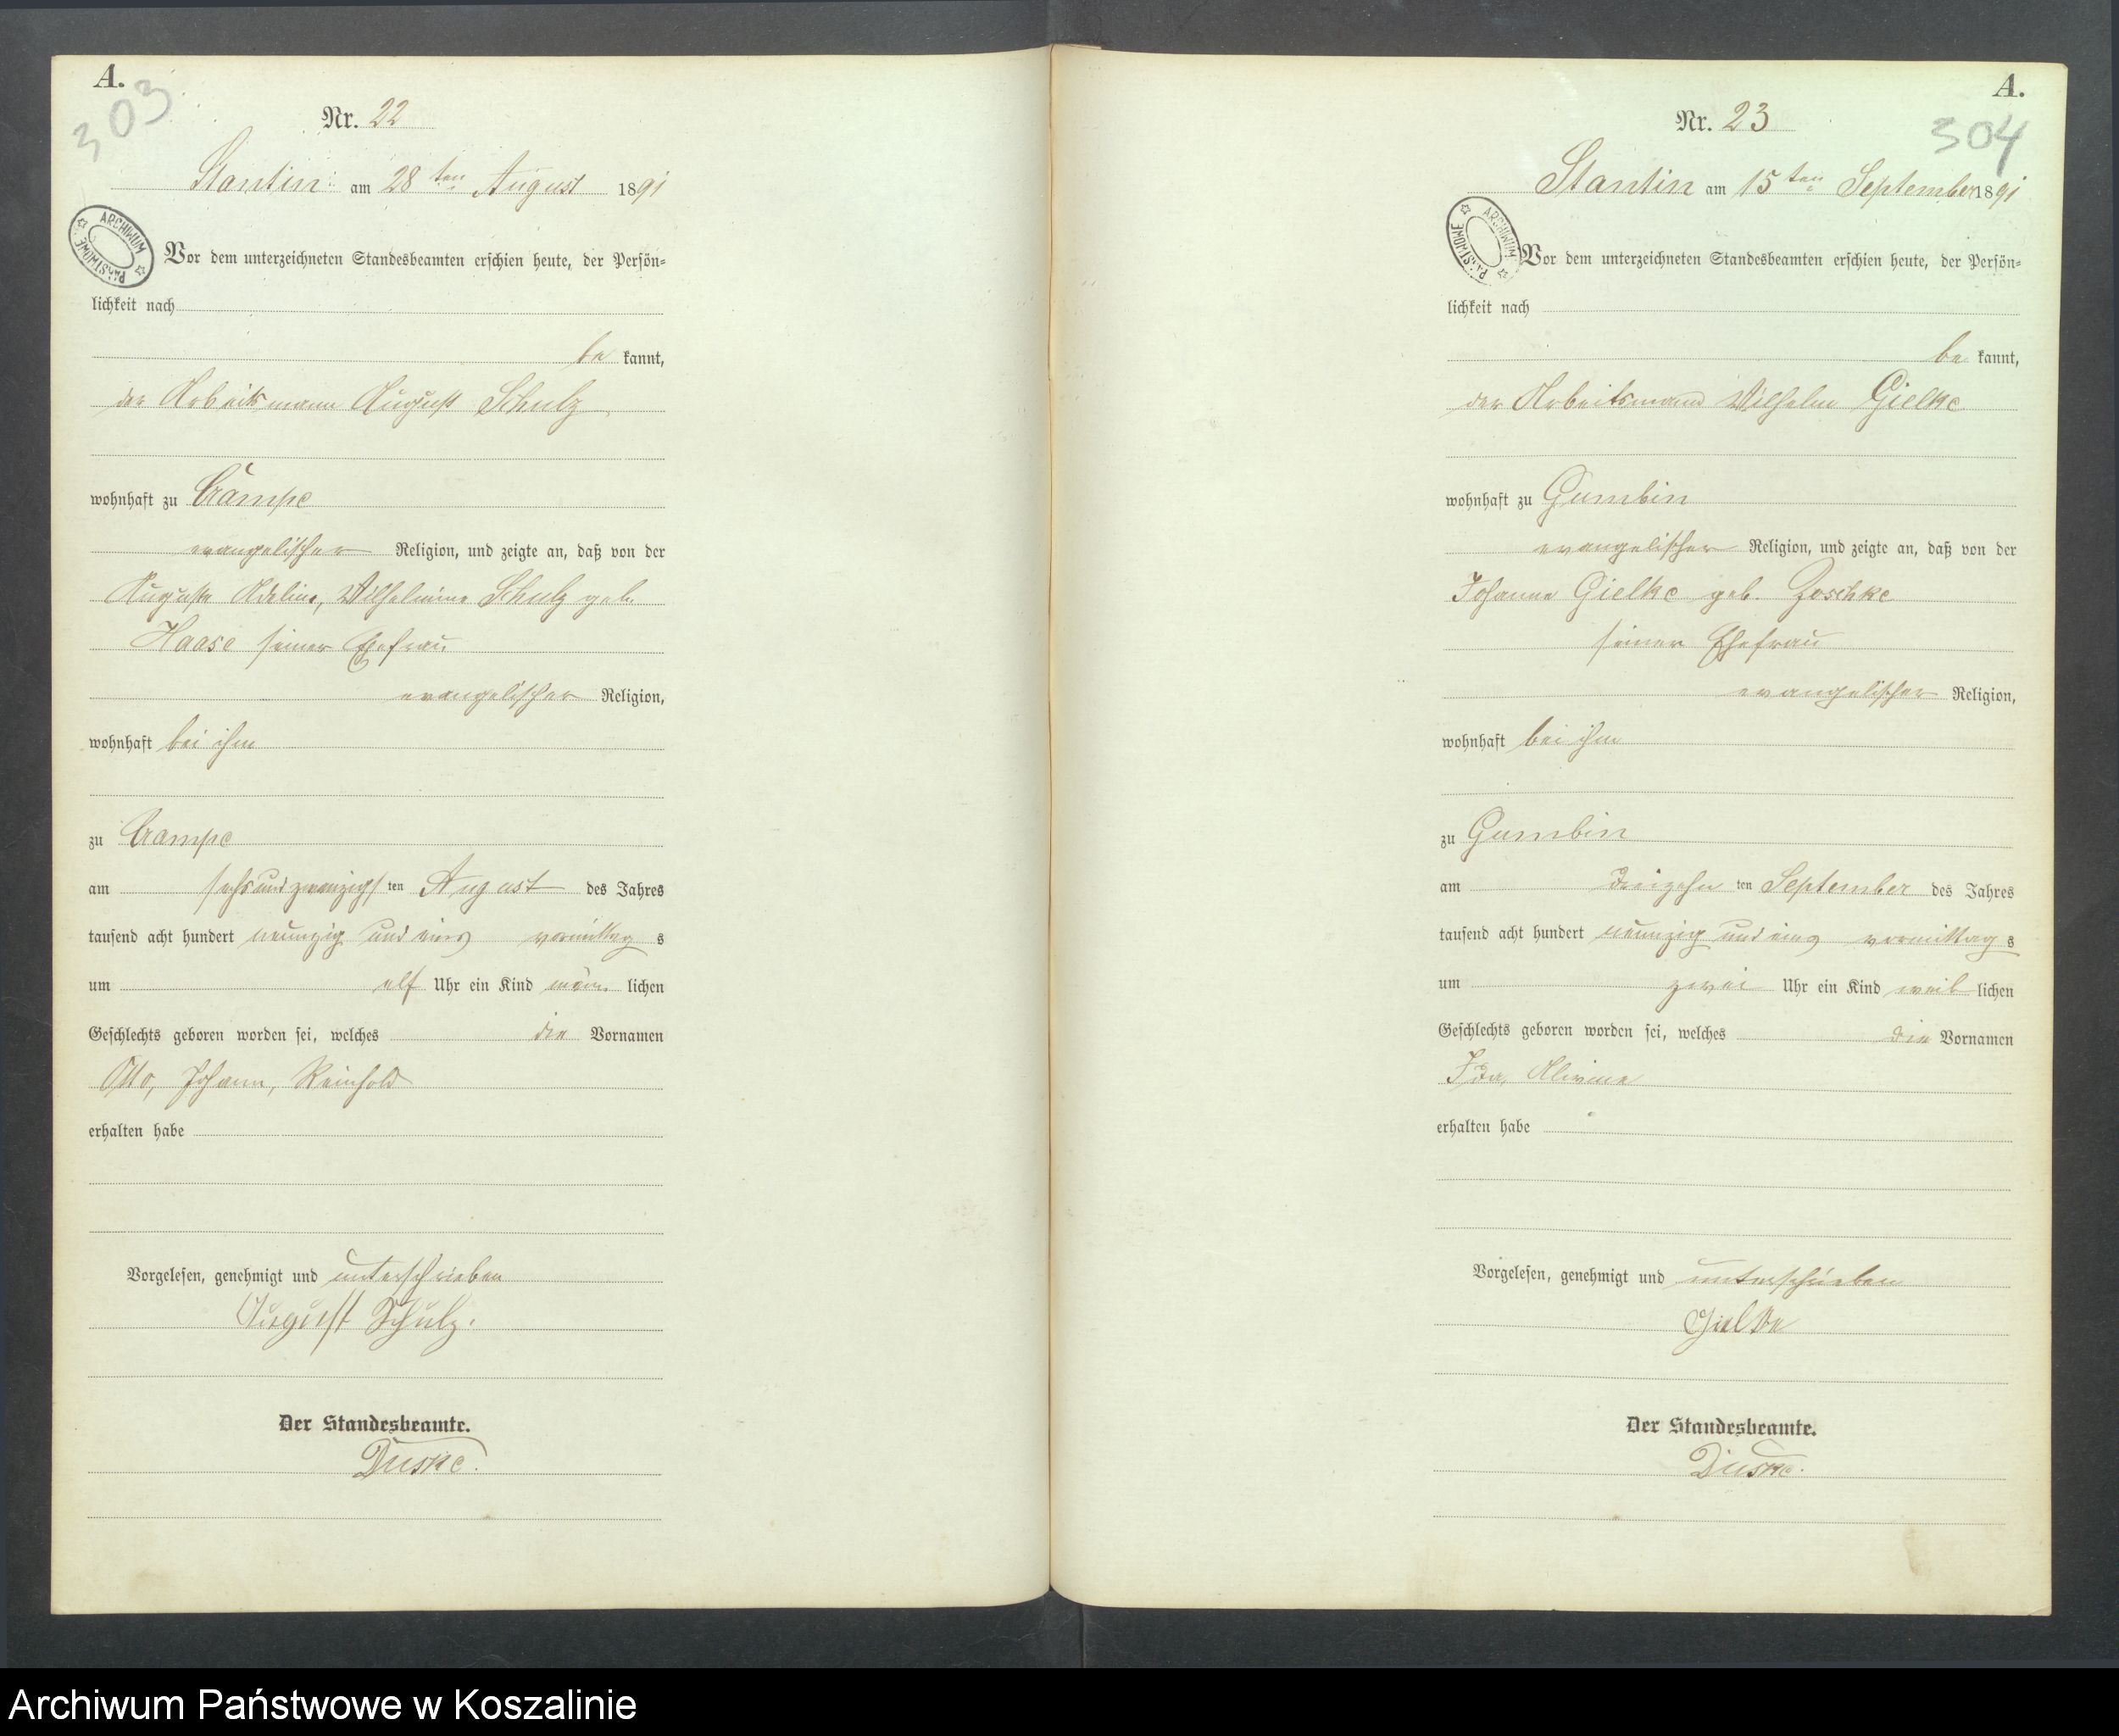 A.
303
Nr. 22
Stantin am 28ten August 1891
ARCHIWUM PAŃSTWOWE
Vor dem unterzeichneten Standesbeamten erschien heute, der Persön-
lichkeit nach
be kannt,
der Arbeitsmann August Schulz
wohnhaft zu Crampe
evangelischer Religion, und zeigte an, daß von der
Auguste Adeline, Wilhelmine Schulz geb.
Haase seiner Ehefrau
evangelischer Religion,
wohnhaft bei ihm
zu Crampe
am sechsundzwanzigsten August des Jahres
tausend acht hundert neunzig und eins vormittags
um elf Uhr ein Kind männlichen
Geschlechts geboren worden sei, welches die Vornamen
Otto, Johann, Reinhold
erhalten habe
Vorgelesen, genehmigt und unterschrieben
August Schulz.
Der Standesbeamte.
Duske.
A.
304
Nr. 23
Stantin am 15ten September 1891
ARCHIWUM PAŃSTWOWE
Vor dem unterzeichneten Standesbeamten erschien heute, der Persön-
lichkeit nach
be kannt,
der Arbeitsmann Wilhelm Gielke
wohnhaft zu Gumbin
evangelischer Religion, und zeigte an, daß von der
Johanne Gielke geb. Zoschke
seiner Ehefrau
evangelischer Religion,
wohnhaft bei ihm
zu Gumbin
am dreizehn ten September des Jahres
tausend acht hundert neunzig und eins vormittags
um zwei Uhr ein Kind weiblichen
Geschlechts geboren worden sei, welches die Vornamen
Ida, Alwine
erhalten habe
Vorgelesen, genehmigt und unterschrieben
Gielke
Der Standesbeamte.
Duske.
Archiwum Państwowe w Koszalinie